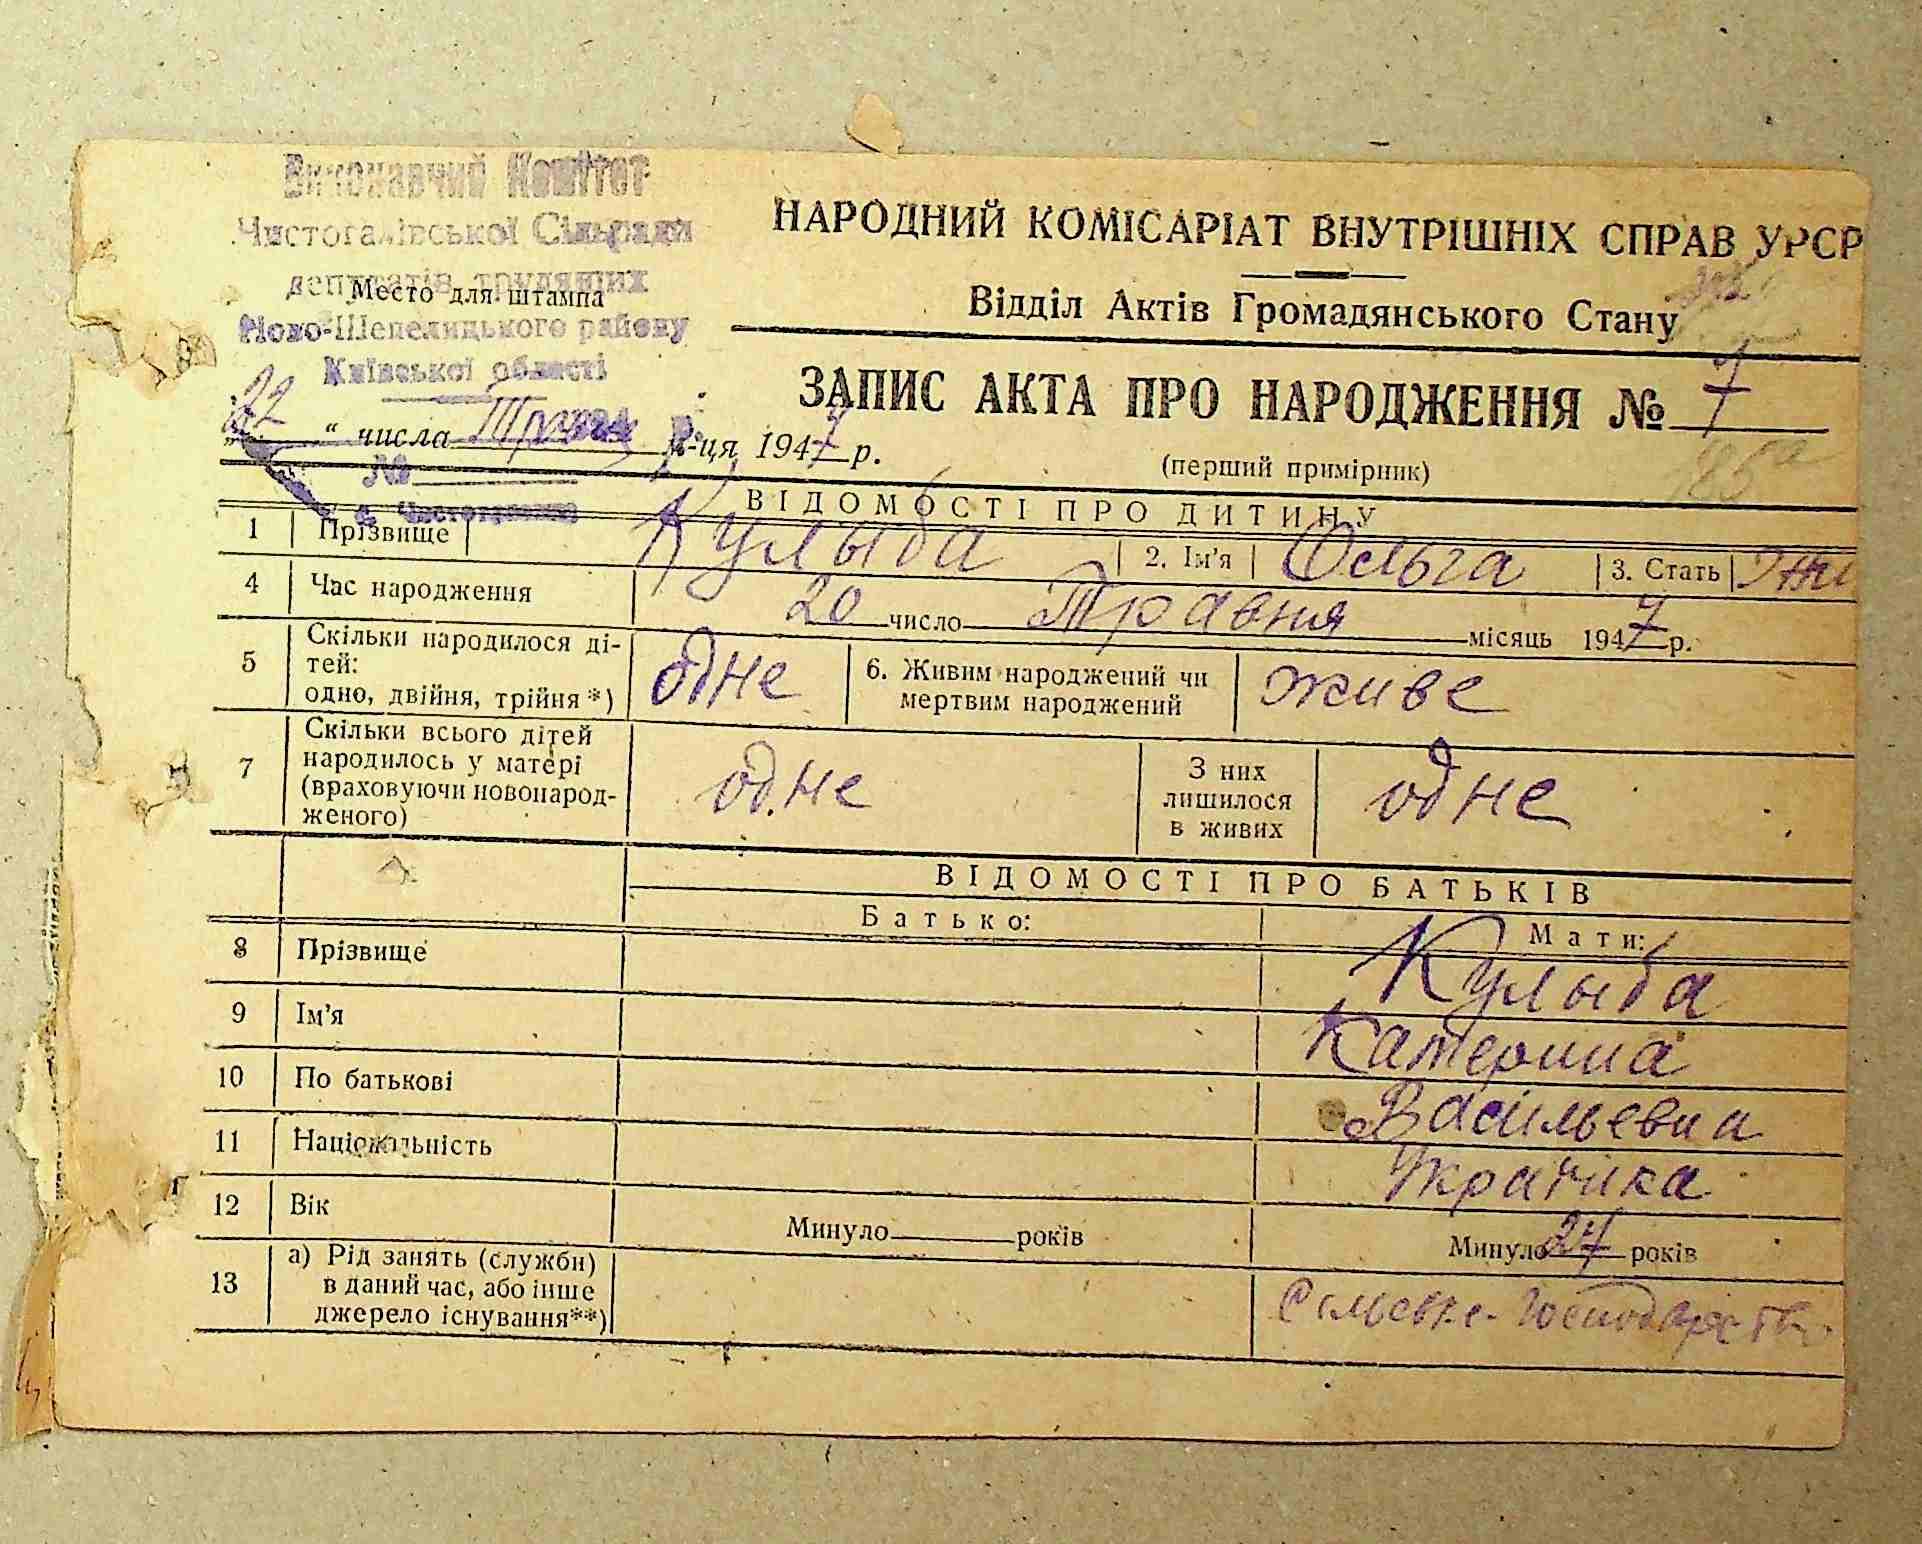 Виконавчий Комітет
Чистогалівської Сільради
депутатів трудящих
Место для штампа
Ново-Шепелицького району
Київської області
22 " числа Травня м-ця 1947 р.
№
с. Чистогалівка
НАРОДНИЙ КОМІСАРІАТ ВНУТРІШНІХ СПРАВ УРСР
Відділ Актів Громадянського Стану
ЗАПИС АКТА ПРО НАРОДЖЕННЯ № 7
(перший примірник)
185а
ВІДОМОСТІ ПРО ДИТИНУ
1 Прізвище Кулыба 2. Ім'я Ольга 3. Стать Жін
4 Час народження 20 число Травня місяць 1947 р.
5 Скільки народилося ді-
тей:
одно, двійня, трійня *) одне 6. Живим народжений чи
мертвим народжений живе
7 Скільки всього дітей
народилось у матері
(враховуючи новонарод-
женого) одне З них
лишилося
в живих одне
ВІДОМОСТІ ПРО БАТЬКІВ
Батько: Мати:
8 Прізвище Кулыба
9 Ім'я Катерина
10 По батькові Васильевна
11 Національність Украінка
12 Вік Минуло років Минуло 27 років
13 а) Рід занять (служби)
в даний час, або інше
джерело існування**) Сільське-Господарств